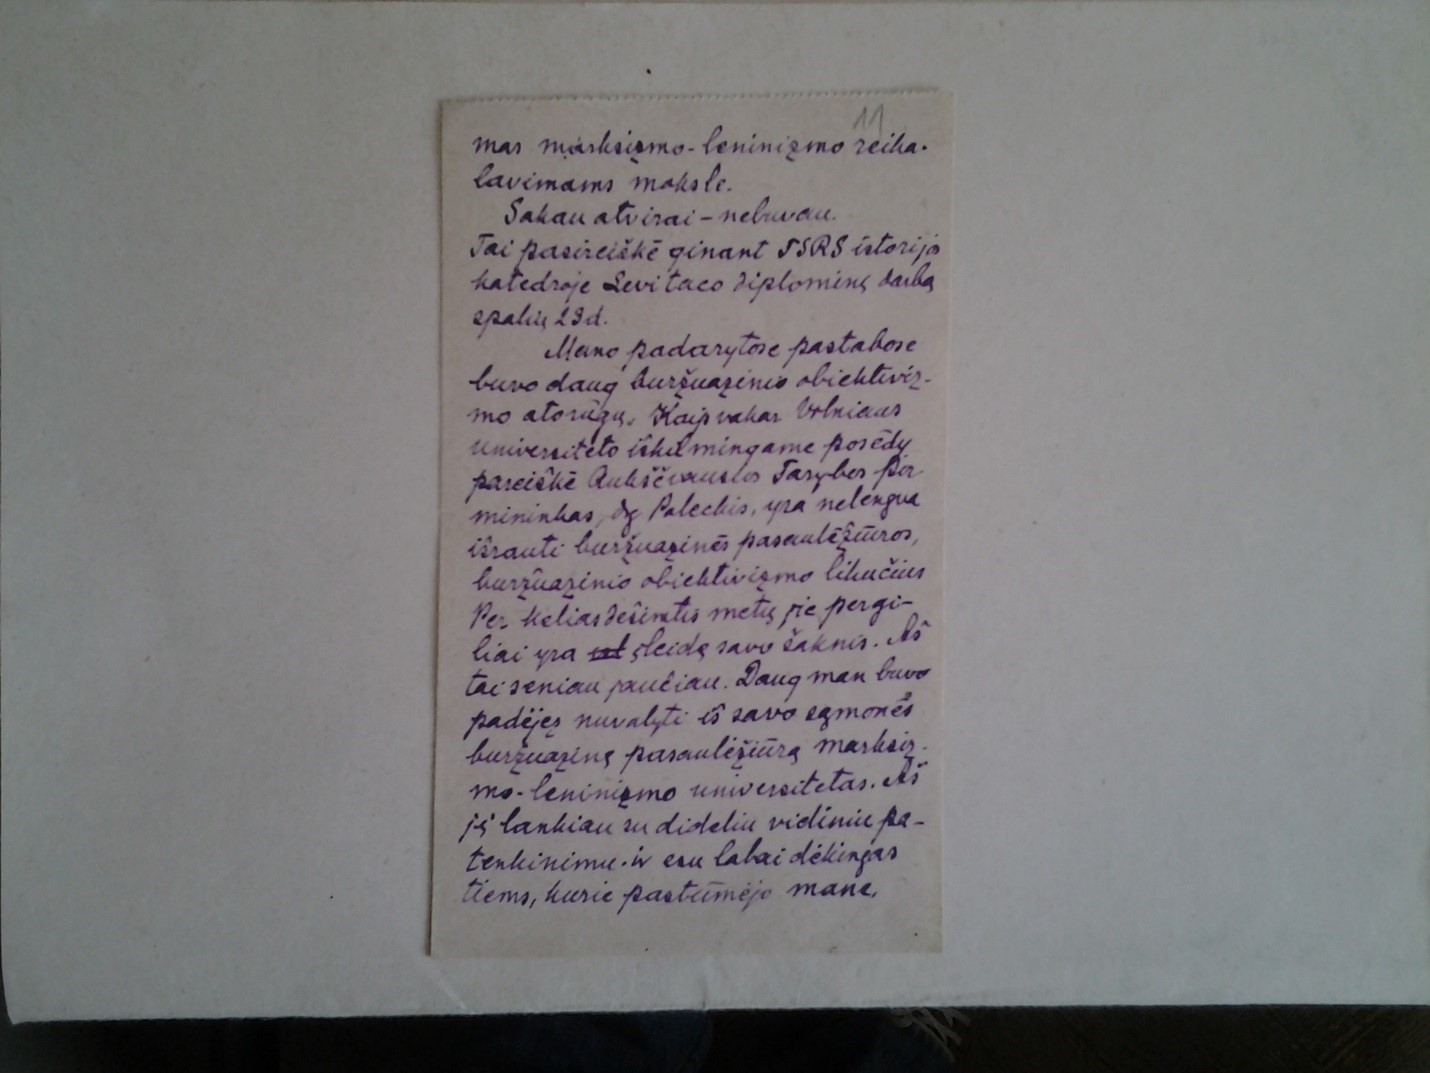 11
mas marksizmo-leninizmo reika-
lavimams moksle.
Sakau atvirai – nebuvau.
Tai pasireiškė ginant TSRS istorijos
katedroje Levitaco diplominį darbą
spalių 29 d.
Mano padarytose pastabose
buvo daug buržuazinio obiektiviz-
mo atorūgų. Kaip vakar Vilniaus
universiteto iškilmingame posėdy
pareiškė Aukščiausios Tarybos pir-
mininkas, dg Paleckis, yra nelengva
išrauti buržuazinės pasaulėžiūros,
buržuazinio obiektivizmo likučius
Per keliasdešimtis metų jie pergi-
liai yra įleidę savo šaknis. Aš
tai seniau jaučiau. Daug man buvo
padėjęs nuvalyti iš savo sąmonės
buržuazinę pasaulėžiūrą marksiz-
mo-leninizmo universitetas. Aš
jį lankiau su dideliu vidiniu pa-
tenkinimu ir esu labai dėkingas
tiems, kurie pastūmėjo mane,